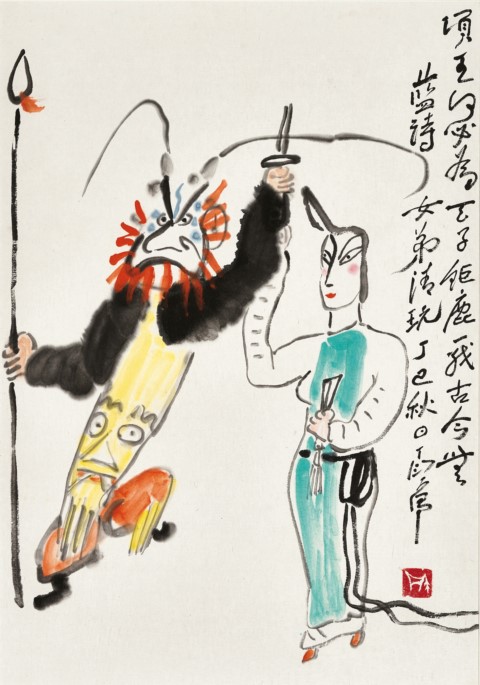 項王何必為天子鉅鹿一戰古今無
藍詩
女弟清玩丁巳秋日